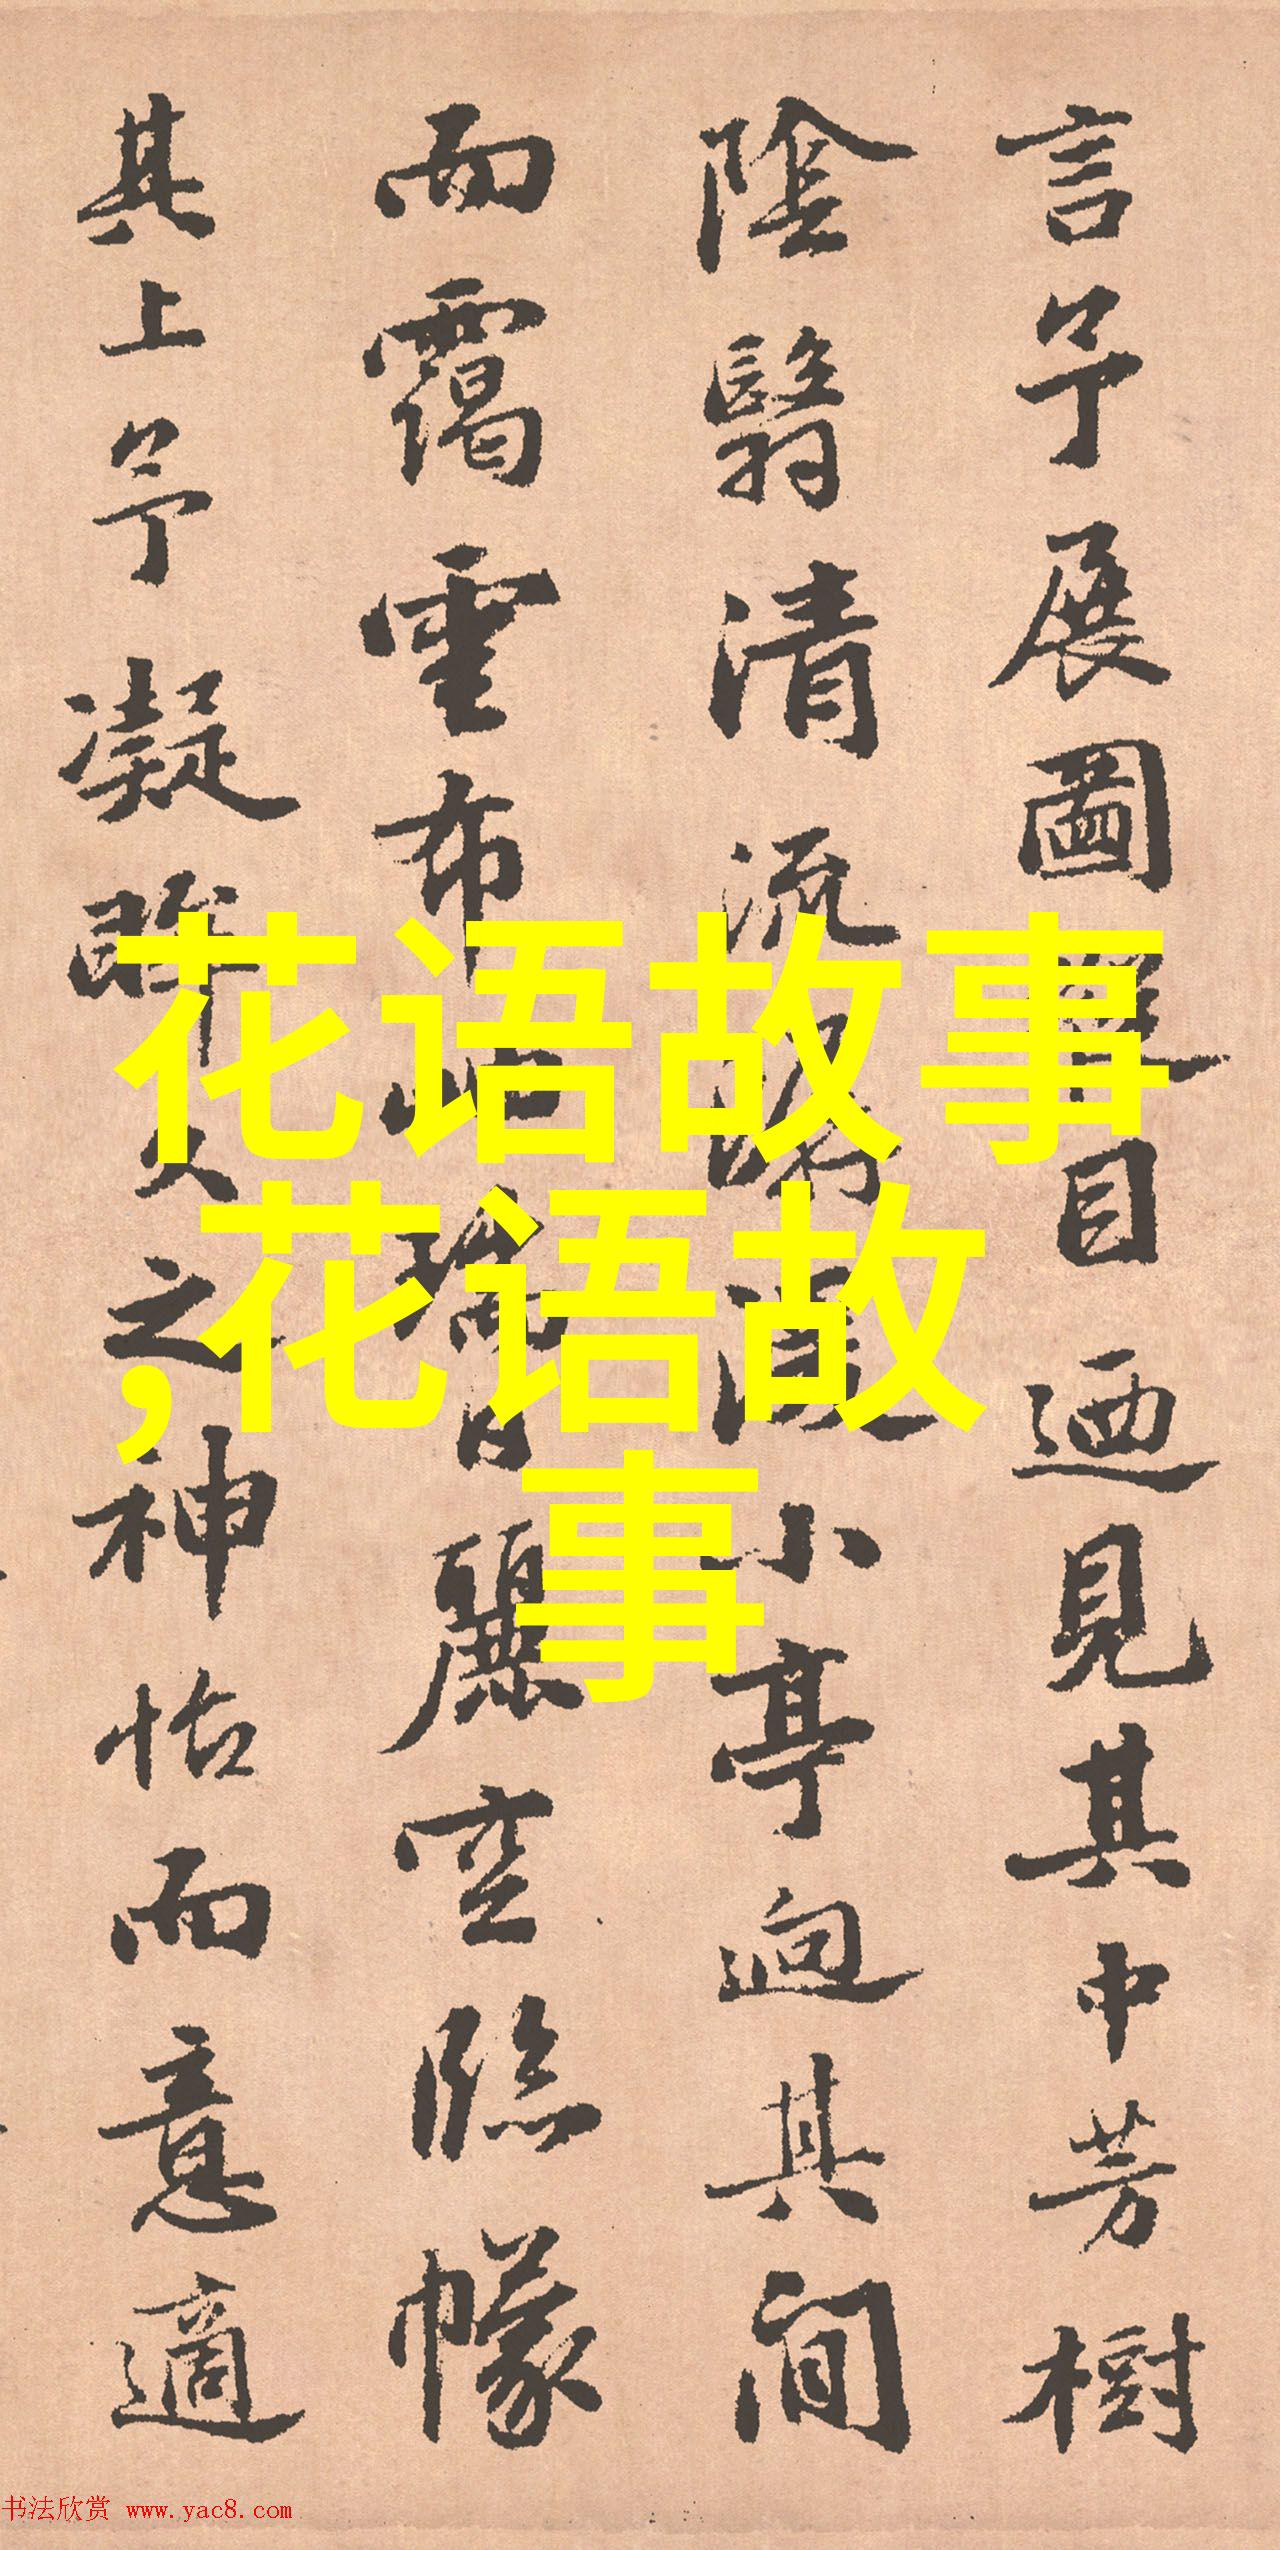 言予展圖縱目迺見其中芳樹
陰翳清流
小亭迥其間
而靄雲布
麗空臨幪
其上予凝眸久之神怡而意適
花语故事
,花语故
事
书法欣赏 www.yac8.com